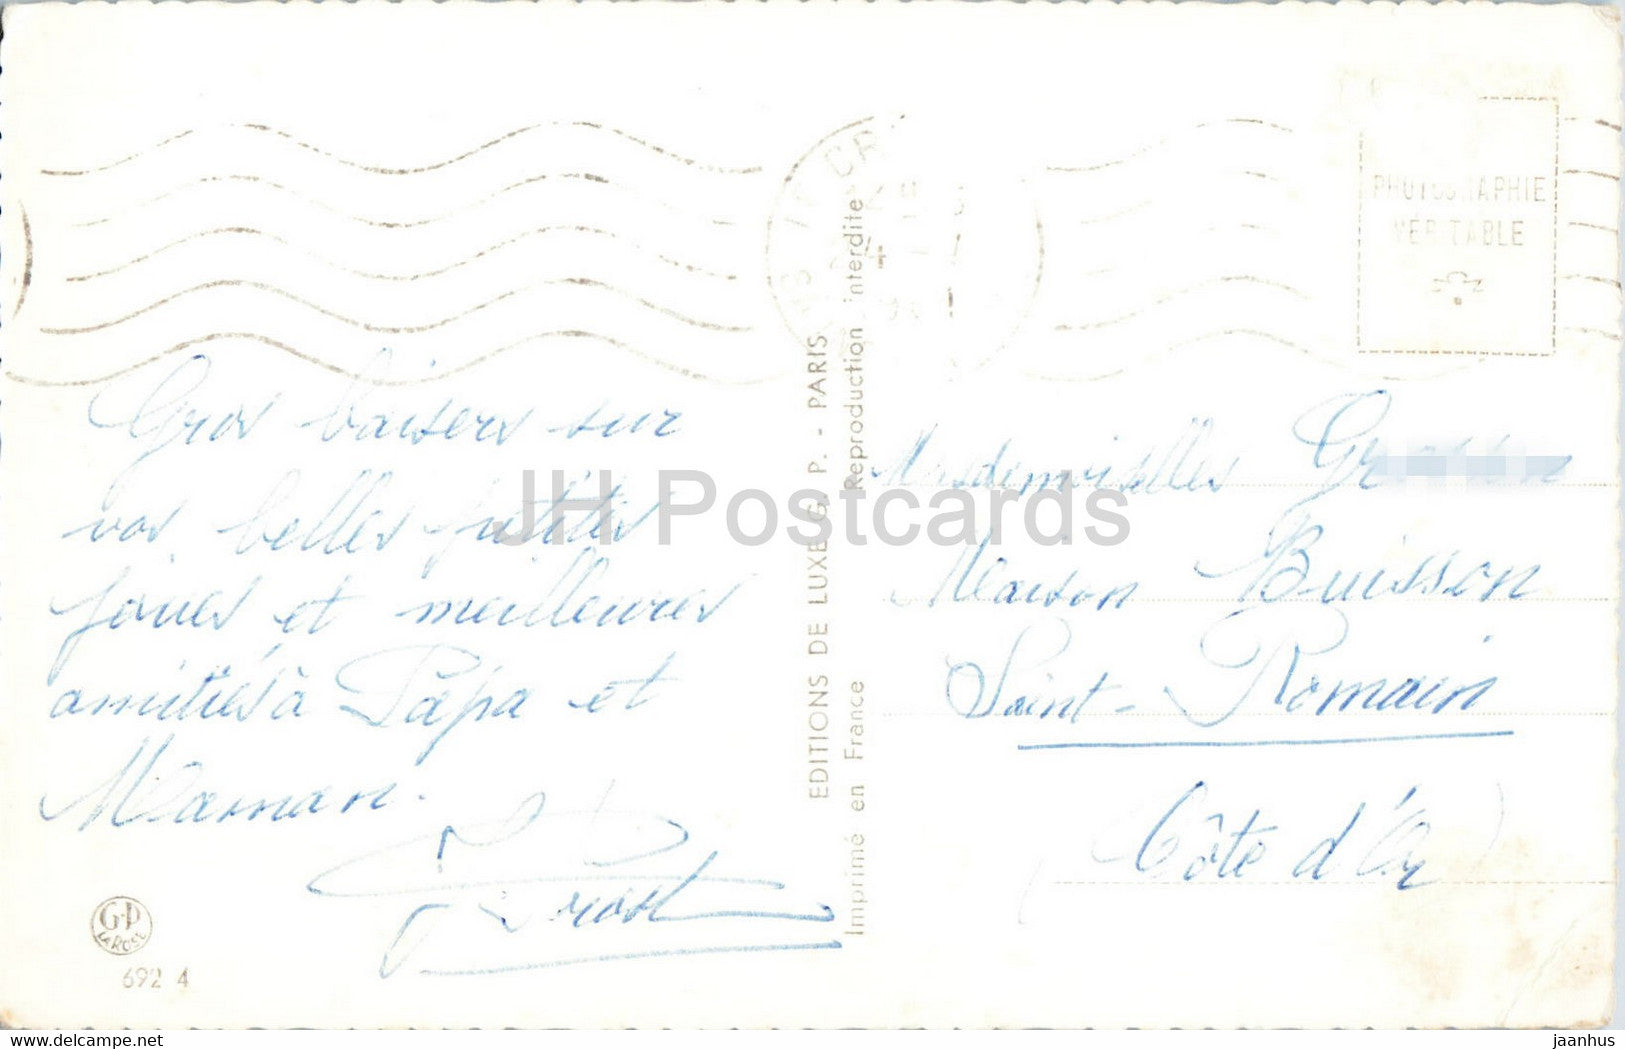 Gros baisers sur
vos belles petites
joues et meilleures
amitiés à Papa et
Maman.
Prost
G.P
LA ROSE
692 4
EDITIONS DE LUXE G. P. - PARIS
Imprimé en France
Reproduction interdite
PHOTOGRAPHIE
VÉRITABLE
Mesdemoiselles
Maison Buisson
Saint-Romain
(Côte d'Or)
JH Postcards
www.delcampe.net
jaanhus